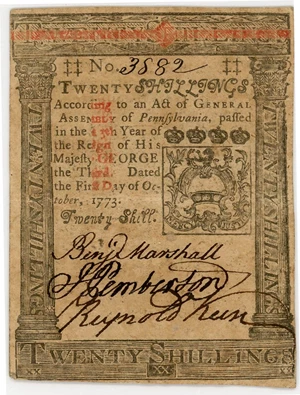 TWENTY SHILLINGS
‡‡ No. 3882 ‡‡
TWENTY SHILLINGS
According to an Act of GENERAL
ASSEMBLY of Pennsylvania, passed
in the 13th Year of
the Reign of His
Majesty GEORGE
the Third. Dated
the First Day of Oc-
tober, 1773.
Twenty Shill.
Benj Marshall
J Pemberton
Reynold Keen
TWENTY SHILLINGS
XX XX
TWENTY SHILLING
TWENTY SHILLINGS